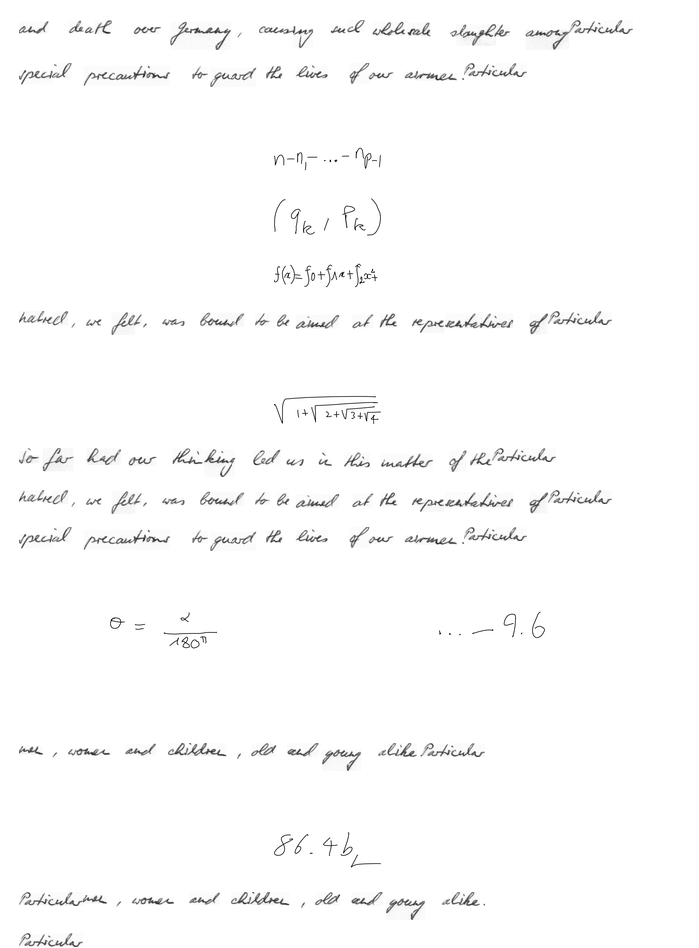 and death over Germany, causing such wholesale slaughter among Particular
special precautions to guard the lives of our airmen. Particular
n-n_1-...-n_{p-1}
(q_k, p_k)
f(x)=f_0+f_1x+f_2x^2+
hatred, we felt, was bound to be aimed at the representatives of Particular
√(1+√(2+√(3+√4)))
So far had our thinking led us in this matter of the Particular
hatred, we felt, was bound to be aimed at the representatives of Particular
special precautions to guard the lives of our airmen. Particular
θ = α/180π ... - 9.6
men, women and children, old and young alike Particular
86.4b_L
Particular men, women and children, old and young alike.
Particular